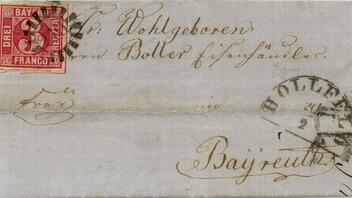 BAYERN
DREI
3
KREUZER
FRANCO
Sr. Wohlgeboren
Herrn Botter Eisenhändler.
frei
in
HOLLFE
20
2
Bayreuth.